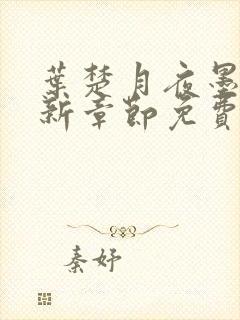 葉楚月夜墨
新章節免費
秦妤